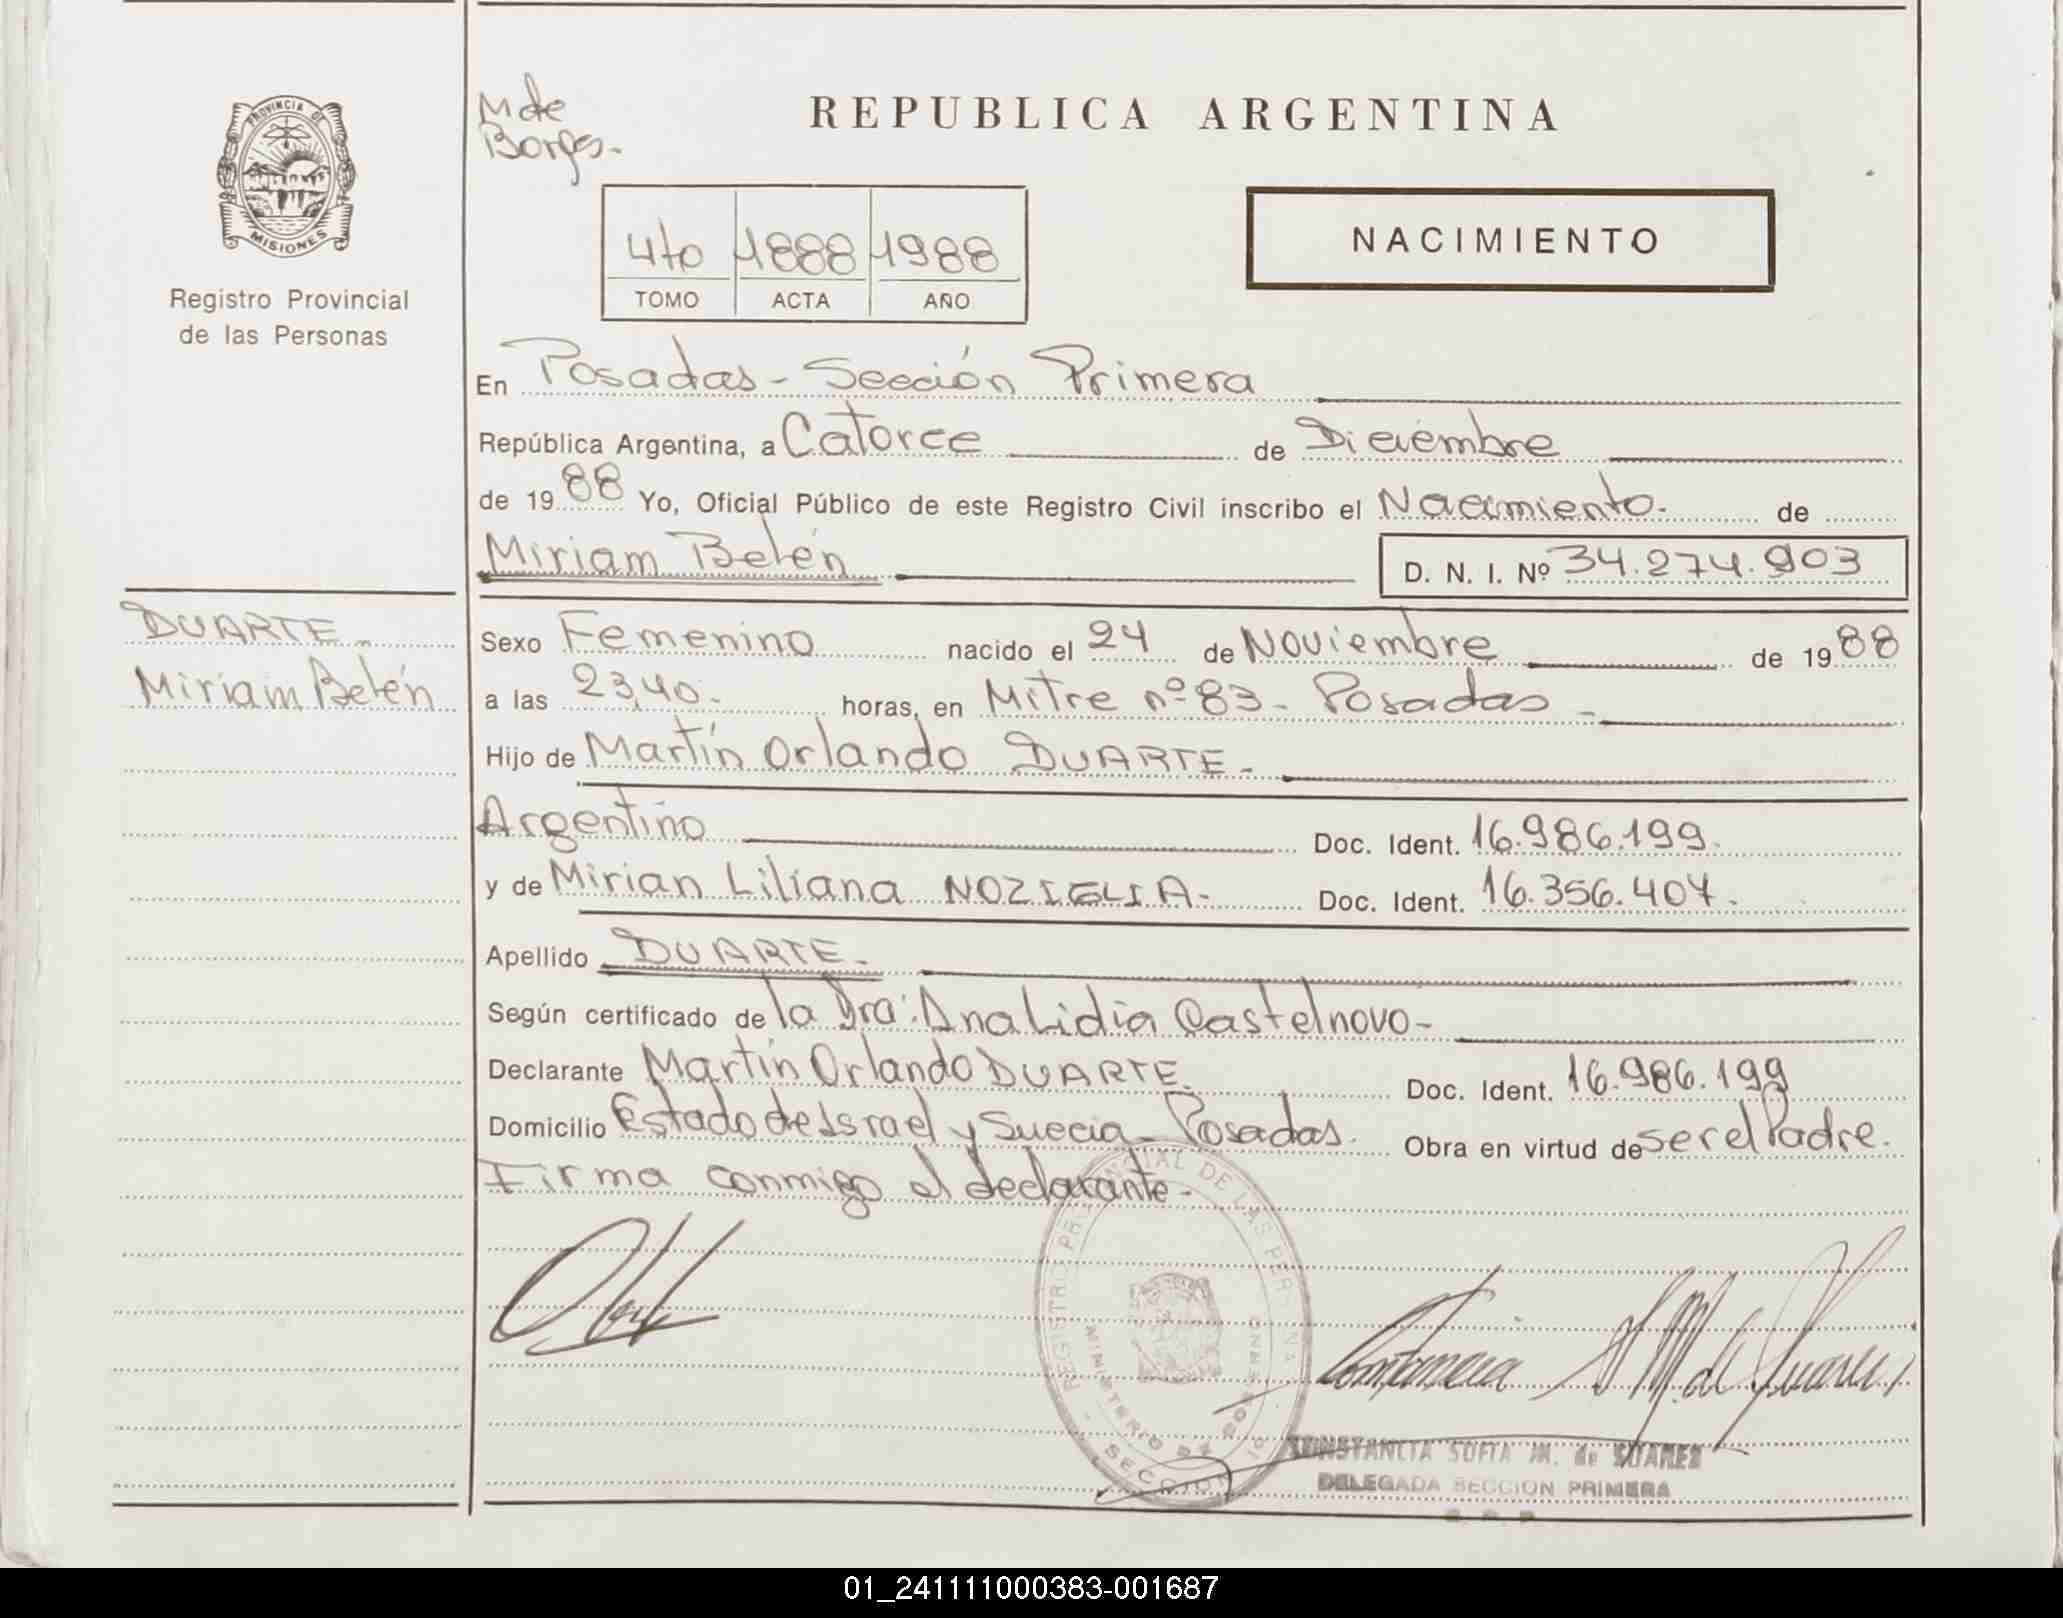 PROVINCIA DE
MISIONES
Registro Provincial
de las Personas
M de
Borges.
REPUBLICA ARGENTINA
4to 1888 1988
TOMO ACTA AÑO
NACIMIENTO
En Posadas - Sección Primera
República Argentina, a Catorce de Diciembre
de 1988 Yo, Oficial Público de este Registro Civil inscribo el Nacimiento. de
Miriam Belén D. N. I. Nº 34.274.903
DUARTE -
Miriam Belén
Sexo Femenino nacido el 24 de Noviembre de 1988
a las 23,40. horas, en Mitre nº 83 - Posadas -
Hijo de Martín Orlando DUARTE -
Argentino Doc. Ident. 16.986.199.
y de Mirian Liliana NOZIGLIA - Doc. Ident. 16.356.407.
Apellido DUARTE -
Según certificado de la Dra: Ana Lidia Castelnovo -
Declarante Martín Orlando DUARTE. Doc. Ident. 16.986.199
Domicilio Estado de Israel y Suecia - Posadas. Obra en virtud de ser el Padre.
Firma conmigo el declarante -
REGISTRO PROVINCIAL DE LAS PERSONAS
MINISTERIO DE GOBIERNO
SECCION
Constancia S M. de Suares
CONSTANCIA SOFIA M. de SUARES
DELEGADA SECCION PRIMERA
01_241111000383-001687